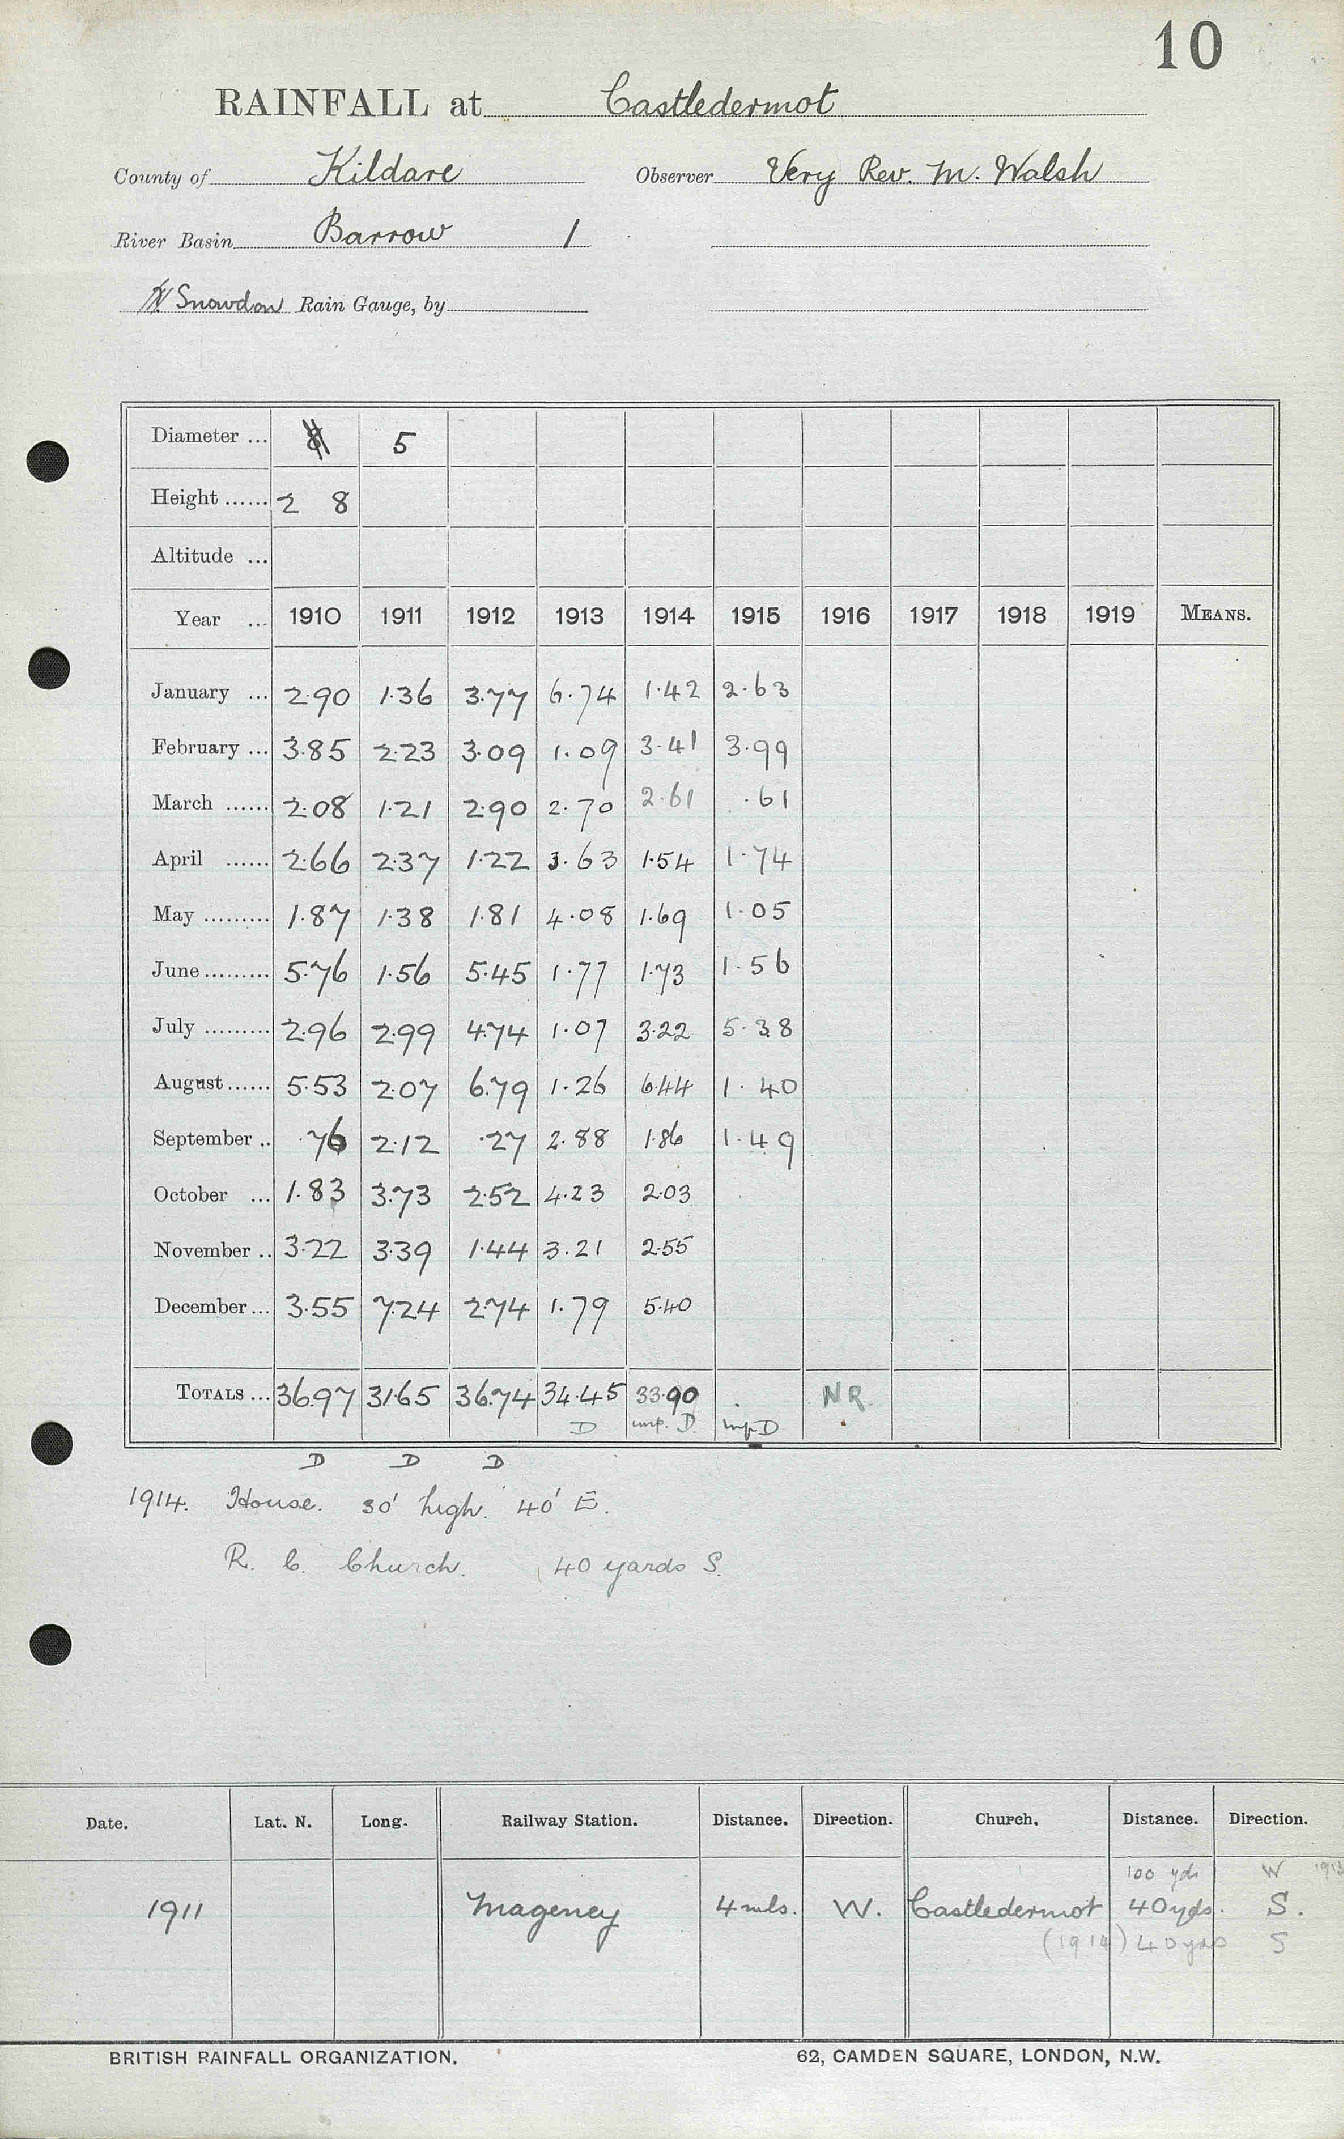 10
RAINFALL at Castledermot
County of Kildare Observer Very Rev. M. Walsh
River Basin Barrow 1
Snowdon Rain Gauge, by
Diameter ... 5
Height ...... 2 8
Altitude ...
Year ... 1910 1911 1912 1913 1914 1915 1916 1917 1918 1919 MEANS.
January ... 2.90 1.36 3.77 6.74 1.42 2.63
February ... 3.85 2.23 3.09 1.09 3.41 3.99
March ...... 2.08 1.21 2.90 2.70 2.61 .61
April ...... 2.66 2.37 1.22 3.63 1.54 1.74
May ......... 1.87 1.38 1.81 4.08 1.69 1.05
June ......... 5.76 1.56 5.45 1.77 1.73 1.56
July ......... 2.96 2.99 4.74 1.07 3.22 5.38
August ...... 5.53 2.07 6.79 1.26 6.44 1.40
September .. .76 2.12 .27 2.88 1.86 1.49
October ... 1.83 3.73 2.52 4.23 2.03
November .. 3.22 3.39 1.44 3.21 2.55
December ... 3.55 7.24 2.74 1.79 5.40
TOTALS ... 36.97 31.65 36.74 34.45 33.90 NR.
D imp. D. imp. D
D D D
1914. House. 30' high. 40' E.
R. C. Church. 40 yards S.
Date. Lat. N. Long. Railway Station. Distance. Direction. Church. Distance. Direction.
100 yds W
1911 Mageney 4 mls. W. Castledermot 40 yds. S.
(1914) 40 yds S
BRITISH RAINFALL ORGANIZATION. 62, CAMDEN SQUARE, LONDON, N.W.